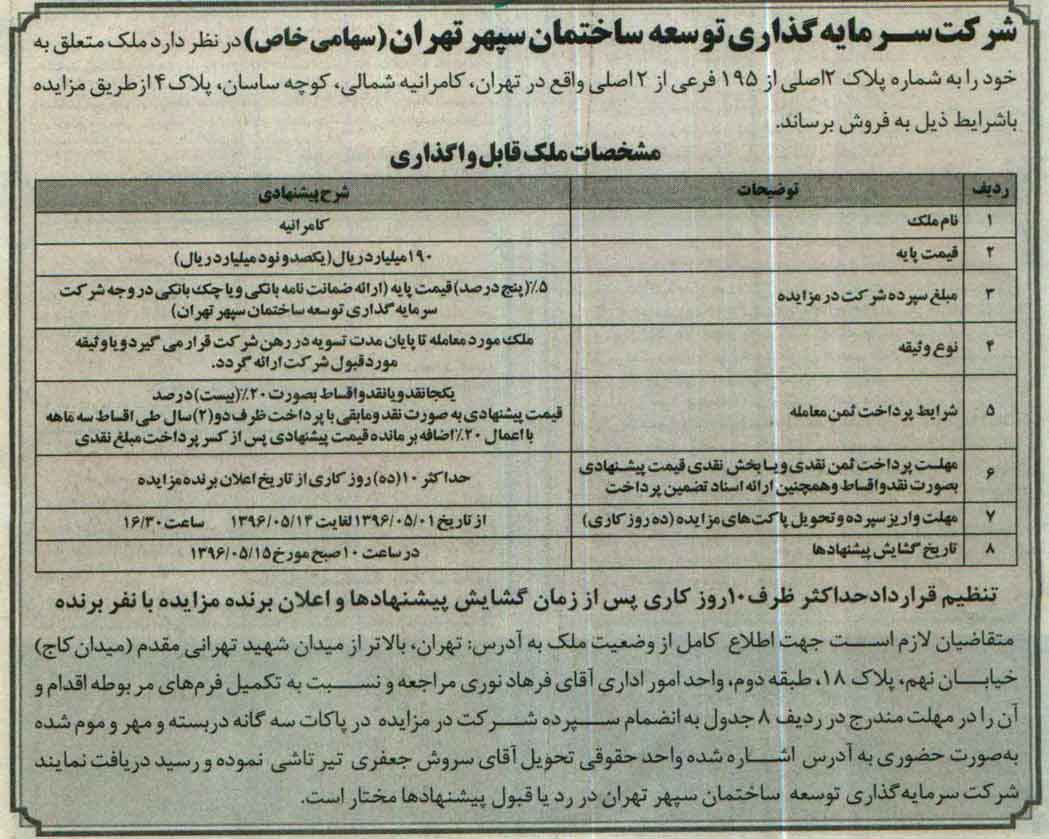 شرکت سرمایه گذاری توسعه ساختمان سپهر تهران (سهامی خاص) در نظر دارد ملک متعلق به
خود را به شماره پلاک ۲اصلی از ۱۹۵ فرعی از ۲ اصلی واقع در تهران، کامرانیه شمالی، کوچه ساسان، پلاک ۴ ازطریق مزایده
باشرایط ذیل به فروش برساند.
مشخصات ملک قابل واگذاری
ردیف توضیحات شرح پیشنهادی
۱ نام ملک کامرانیه
۲ قیمت پایه ۱۹۰میلیارد ریال (یکصد و نود میلیارد ریال)
۳ مبلغ سپرده شرکت در مزایده ۵٪(پنج درصد) قیمت پایه (ارائه ضمانت نامه بانکی و یا چک بانکی در وجه شرکت
سرمایه گذاری توسعه ساختمان سپهر تهران)
۴ نوع وثیقه ملک مورد معامله تا پایان مدت تسویه در رهن شرکت قرار می گیرد و یا وثیقه
مورد قبول شرکت ارائه گردد.
۵ شرایط پرداخت ثمن معامله یکجا نقد و یا نقد و اقساط بصورت ۲۰٪(بیست) درصد
قیمت پیشنهادی به صورت نقد و مابقی با پرداخت ظرف دو (۲) سال طی اقساط سه ماهه
با اعمال ۲۰٪ اضافه بر مانده قیمت پیشنهادی پس از کسر پرداخت مبلغ نقدی
۶ مهلت پرداخت ثمن نقدی و یا بخش نقدی قیمت پیشنهادی
بصورت نقد و اقساط و همچنین ارائه اسناد تضمین پرداخت
حداکثر ۱۰(ده) روز کاری از تاریخ اعلان برنده مزایده
۷ مهلت واریز سپرده و تحویل پاکت های مزایده (ده روز کاری) از تاریخ ۱۳۹۶/۰۵/۰۱ لغایت ۱۳۹۶/۰۵/۱۴ ساعت ۱۶/۳۰
۸ تاریخ گشایش پیشنهادها در ساعت ۱۰ صبح مورخ ۱۳۹۶/۰۵/۱۵
تنظیم قرارداد حداکثر ظرف ۱۰روز کاری پس از زمان گشایش پیشنهادها و اعلان برنده مزایده با نفر برنده
متقاضیان لازم است جهت اطلاع کامل از وضعیت ملک به آدرس: تهران، بالاتر از میدان شهید تهرانی مقدم (میدان کاج)
خیابان نهم، پلاک ۱۸، طبقه دوم، واحد امور اداری آقای فرهاد نوری مراجعه و نسبت به تکمیل فرم‌های مربوطه اقدام و
آن را در مهلت مندرج در ردیف ۸ جدول به انضمام سپرده شرکت در مزایده در پاکات سه گانه دربسته و مهر و موم شده
به‌صورت حضوری به آدرس اشاره شده واحد حقوقی تحویل آقای سروش جعفری تیر تاشی نموده و رسید دریافت نمایند
شرکت سرمایه‌گذاری توسعه ساختمان سپهر تهران در رد یا قبول پیشنهادها مختار است.